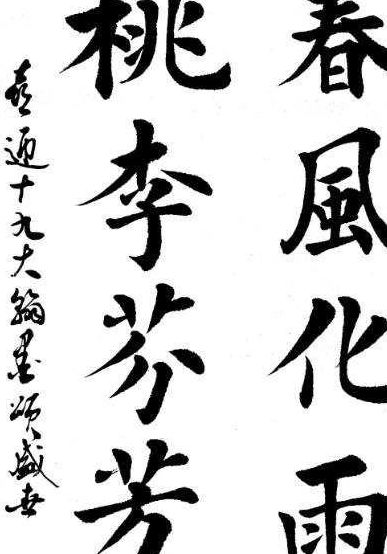 春風化雨
桃李芬芳
喜迎十九大翰墨頌盛世